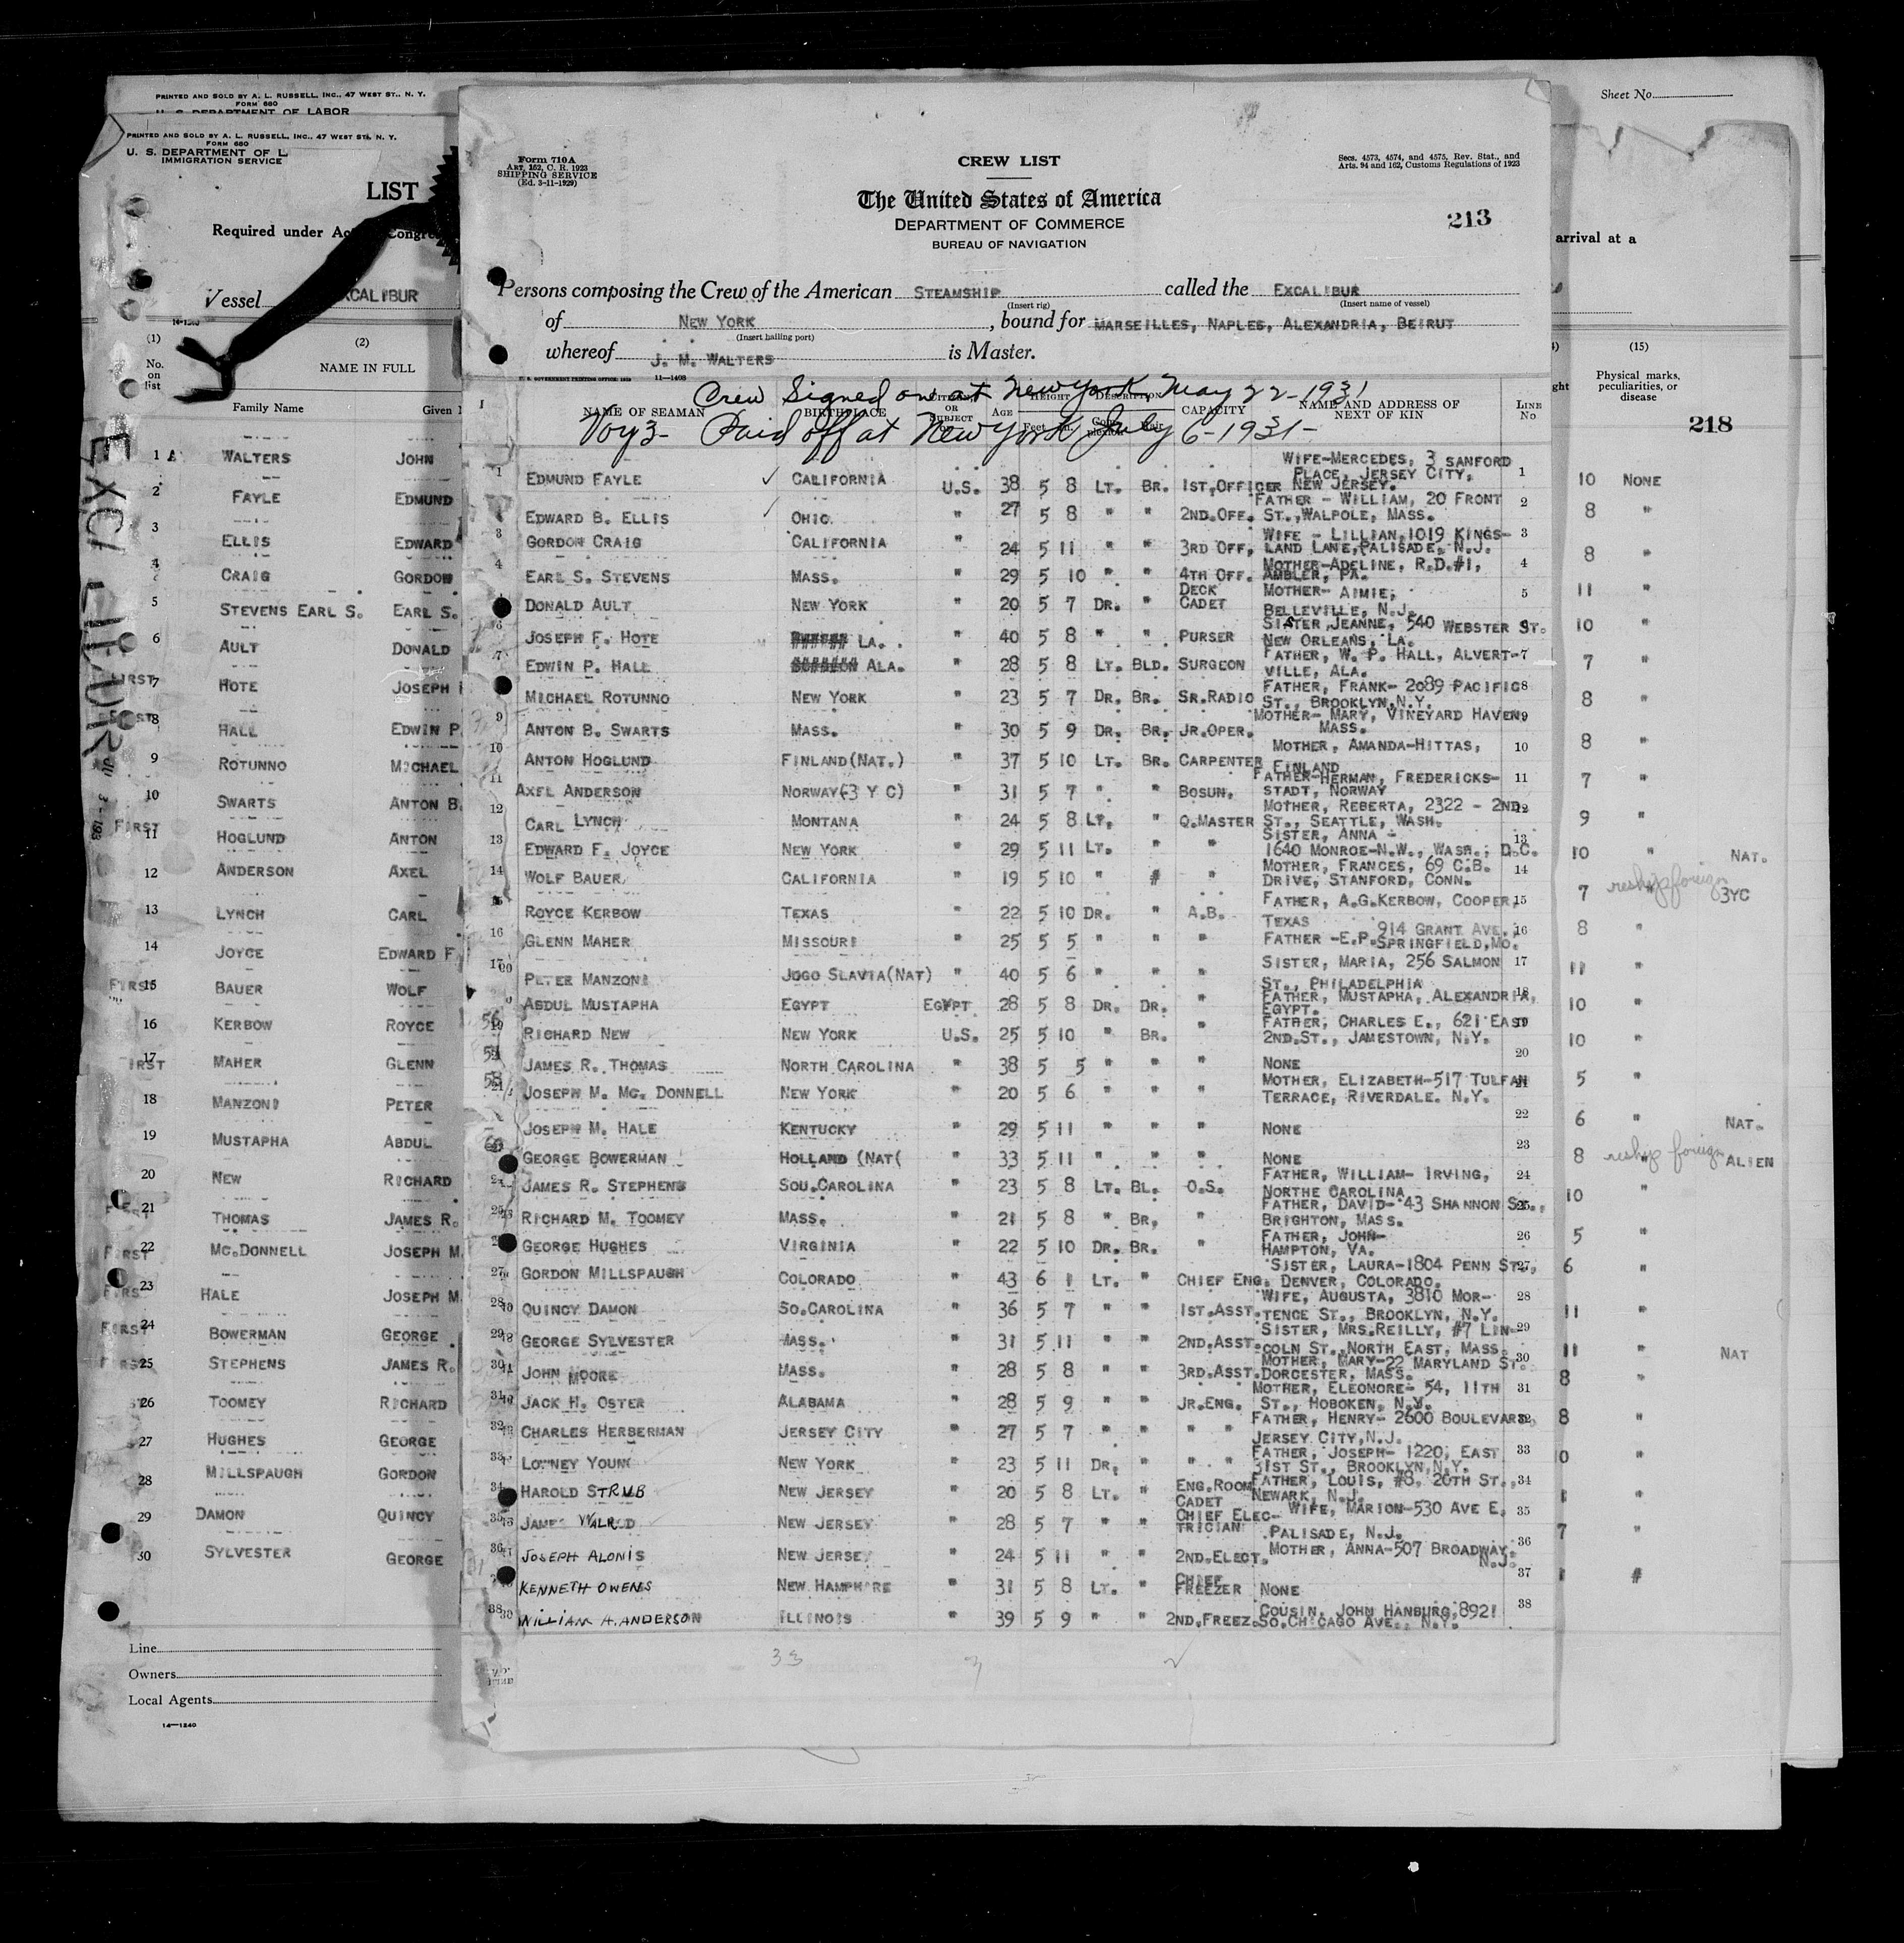 PRINTED AND SOLD BY A. L. RUSSELL, INC., 47 WEST ST., N. Y.
FORM 680
U. S. DEPARTMENT OF LABOR
PRINTED AND SOLD BY A. L. RUSSELL, INC., 47 WEST ST., N. Y.
FORM 680
U. S. DEPARTMENT OF L
IMMIGRATION SERVICE
LIST
Required under Act Congre
Vessel XCALIBUR
14-1240
(1) (2)
No. on list NAME IN FULL
Family Name Given
EXCALIBUR
1 WALTERS JOHN
2 FAYLE EDMUND
3 ELLIS EDWARD
4 CRAIG GORDON
5 STEVENS EARL S. EARL S.
6 AULT DONALD
7 HOTE JOSEPH
8 HALL EDWIN P.
9 ROTUNNO MICHAEL
10 SWARTS ANTON B.
FIRST 11 HOGLUND ANTON
12 ANDERSON AXEL
13 LYNCH CARL
14 JOYCE EDWARD F.
FIRST 15 BAUER WOLF
16 KERBOW ROYCE
IRST 17 MAHER GLENN
18 MANZONI PETER
19 MUSTAPHA ABDUL
20 NEW RICHARD
21 THOMAS JAMES R.
FIRST 22 MC.DONNELL JOSEPH M.
23 HALE JOSEPH M.
FIRST 24 BOWERMAN GEORGE
25 STEPHENS JAMES R.
26 TOOMEY RICHARD
27 HUGHES GEORGE
28 MILLSPAUGH GORDON
29 DAMON QUINCY
30 SYLVESTER GEORGE
Line
Owners
Local Agents
14-1240
Form 710A
ART. 162, C. R. 1923
SHIPPING SERVICE
(Ed. 3-11-1929)
CREW LIST
Secs. 4573, 4574, and 4575, Rev. Stat., and
Arts. 94 and 162, Customs Regulations of 1923
The United States of America
DEPARTMENT OF COMMERCE
BUREAU OF NAVIGATION
213
Persons composing the Crew of the American STEAMSHIP called the EXCALIBUR
(Insert rig) (Insert name of vessel)
of NEW YORK, bound for MARSEILLES, NAPLES, ALEXANDRIA, BEIRUT
(Insert hailing port)
whereof J. M. WALTERS is Master.
U. S. GOVERNMENT PRINTING OFFICE: 1929 11-1408
Crew Signed on at New York May 22-1931
NAME OF SEAMAN BIRTHPLACE CITIZEN OR SUBJECT AGE HEIGHT Feet In. DESCRIPTION Complexion Hair CAPACITY NAME AND ADDRESS OF NEXT OF KIN LINE No
Voy 3- Paid off at New York July 6-1931-
1 EDMUND FAYLE ✓ CALIFORNIA U.S. 38 5 8 LT. BR. 1ST.OFFICER WIFE-MERCEDES, 3 SANFORD PLACE, JERSEY CITY, NEW JERSEY. 1
EDWARD B. ELLIS OHIO. " 27 5 8 " " 2ND.OFF. FATHER - WILLIAM, 20 FRONT ST.,WALPOLE, MASS. 2
3 GORDON CRAIG CALIFORNIA " 24 5 11 " " 3RD OFF. WIFE - LILLIAN,1019 KINGS-LAND LANE,PALISADE, N.J. 3
4 EARL S. STEVENS MASS. " 29 5 10 " " 4TH OFF. MOTHER-ADELINE, R.D.#1, AMBLER, PA. 4
DONALD AULT NEW YORK " 20 5 7 DR. " DECK CADET MOTHER- AIMIE, BELLEVILLE, N.J. 5
6 JOSEPH F. HOTE LA. " 40 5 8 " " PURSER SISTER JEANNE, 540 WEBSTER ST. NEW ORLEANS, LA. 6
7 EDWIN P. HALL ALA. " 28 5 8 LT. BLD. SURGEON FATHER, W. P. HALL, ALVERT-VILLE, ALA. 7
MICHAEL ROTUNNO NEW YORK " 23 5 7 DR. BR. SR.RADIO FATHER, FRANK- 2089 PACIFIC ST., BROOKLYN,N.Y. 8
9 ANTON B. SWARTS MASS. " 30 5 9 DR. BR. JR.OPER. MOTHER- MARY, VINEYARD HAVEN MASS. 9
10 ANTON HOGLUND FINLAND(NAT.) " 37 5 10 LT. BR. CARPENTER MOTHER, AMANDA-HITTAS, FINLAND 10
11 AXEL ANDERSON NORWAY(3 Y C) " 31 5 7 " " BOSUN. FATHER-HERMAN, FREDERICKS-STADT, NORWAY 11
12 CARL LYNCH MONTANA " 24 5 8 LT. " Q.MASTER MOTHER, REBERTA, 2322 - 2ND. ST., SEATTLE, WASH. 12
13 EDWARD F. JOYCE NEW YORK " 29 5 11 LT. " " SISTER, ANNA - 1640 MONROE-N.W., WASH., D.C. 13
14 WOLF BAUER CALIFORNIA " 19 5 10 " # " MOTHER, FRANCES, 69 C.B. DRIVE, STANFORD, CONN. 14
15 ROYCE KERBOW TEXAS " 22 5 10 DR. " A.B. FATHER, A.G.KERBOW, COOPER, TEXAS 15
16 GLENN MAHER MISSOURI " 25 5 5 " " " FATHER -E.P. 914 GRANT AVE. SPRINGFIELD,MO. 16
17 PETER MANZONI JOGO SLAVIA(NAT) " 40 5 6 " " " SISTER, MARIA, 256 SALMON ST., PHILADELPHIA 17
ABDUL MUSTAPHA EGYPT EGYPT 28 5 8 DR. DR. " FATHER, MUSTAPHA, ALEXANDRIA, EGYPT. 18
19 RICHARD NEW NEW YORK U.S. 25 5 10 " BR. " FATHER, CHARLES E., 621 EAST 2ND.ST., JAMESTOWN, N.Y. 19
JAMES R. THOMAS NORTH CAROLINA " 38 5 5 " " " NONE 20
JOSEPH M. MC. DONNELL NEW YORK " 20 5 6 " " " MOTHER, ELIZABETH-517 TULFAN TERRACE, RIVERDALE. N.Y. 21
JOSEPH M. HALE KENTUCKY " 29 5 11 " " " NONE 22
GEORGE BOWERMAN HOLLAND (NAT( " 33 5 11 " " " NONE 23
JAMES R. STEPHENS SOU.CAROLINA " 23 5 8 LT. BL. O.S. FATHER, WILLIAM- IRVING, NORTHE CAROLINA 24
25 RICHARD M. TOOMEY MASS. " 21 5 8 " BR. " FATHER, DAVID- 43 SHANNON ST., BRIGHTON, MASS. 25
GEORGE HUGHES VIRGINIA " 22 5 10 DR. BR. " FATHER, JOHN- HAMPTON, VA. 26
27 GORDON MILLSPAUGH COLORADO " 43 6 1 LT. " CHIEF ENG. SISTER, LAURA-1804 PENN ST., DENVER, COLORADO. 27
28 QUINCY DAMON SO.CAROLINA " 36 5 7 " " 1ST.ASST. WIFE, AUGUSTA, 3810 MOR-TENCE ST., BROOKLYN, N.Y. 28
29 GEORGE SYLVESTER MASS. " 31 5 11 " " 2ND.ASST. SISTER, MRS.REILLY, #7 LIN-COLN ST.,NORTH EAST, MASS. 29
30 JOHN MOORE MASS. " 28 5 8 " " 3RD.ASST. MOTHER, MARY-22 MARYLAND ST. DORCESTER, MASS. 30
31 JACK H. OSTER ALABAMA " 28 5 9 " " JR.ENG. MOTHER, ELEONORE- 54, 11TH ST., HOBOKEN, N.J. 31
32 CHARLES HERBERMAN JERSEY CITY " 27 5 7 " " " " FATHER, HENRY- 2600 BOULEVARD, JERSEY CITY,N.J. 32
33 LOWNEY YOUNG NEW YORK " 23 5 11 DR. " " " FATHER, JOSEPH- 1220, EAST 31ST ST., BROOKLYN,N.Y. 33
34 HAROLD STRUB NEW JERSEY " 20 5 8 LT. " ENG.ROOM CADET FATHER, LOUIS, #8, 20TH ST., NEWARK, N.J. 34
35 JAMES NEW JERSEY " 28 5 7 " " CHIEF ELEC-TRICIAN WIFE, MARION-530 AVE E, PALISADE, N.J. 35
36 JOSEPH ALONIS NEW JERSEY " 24 5 11 " " 2ND.ELECT. MOTHER, ANNA-507 BROADWAY, N.J. 36
KENNETH OWENS NEW HAMPHIRE " 31 5 8 LT. " CHIEF FREEZER NONE 37
38 WILLIAM A. ANDERSON ILLINOIS " 39 5 9 " " 2ND.FREEZ. COUSIN, JOHN HANBURG,8921 SO.CHICAGO AVE., N.Y. 38
33
Sheet No.
arrival at a
(15)
Physical marks, peculiarities, or disease
218
10 NONE
8 "
8 "
11 "
10 "
7 "
8 "
8 "
7 "
9 "
10 " NAT.
7 reship foreign 3YC
8 "
11 "
10 "
10 "
5 "
6 " NAT.
8 reship foreign ALIEN
10 "
5 "
6 "
11 "
11 " NAT
8 "
8 "
0 "
"
7 "
#